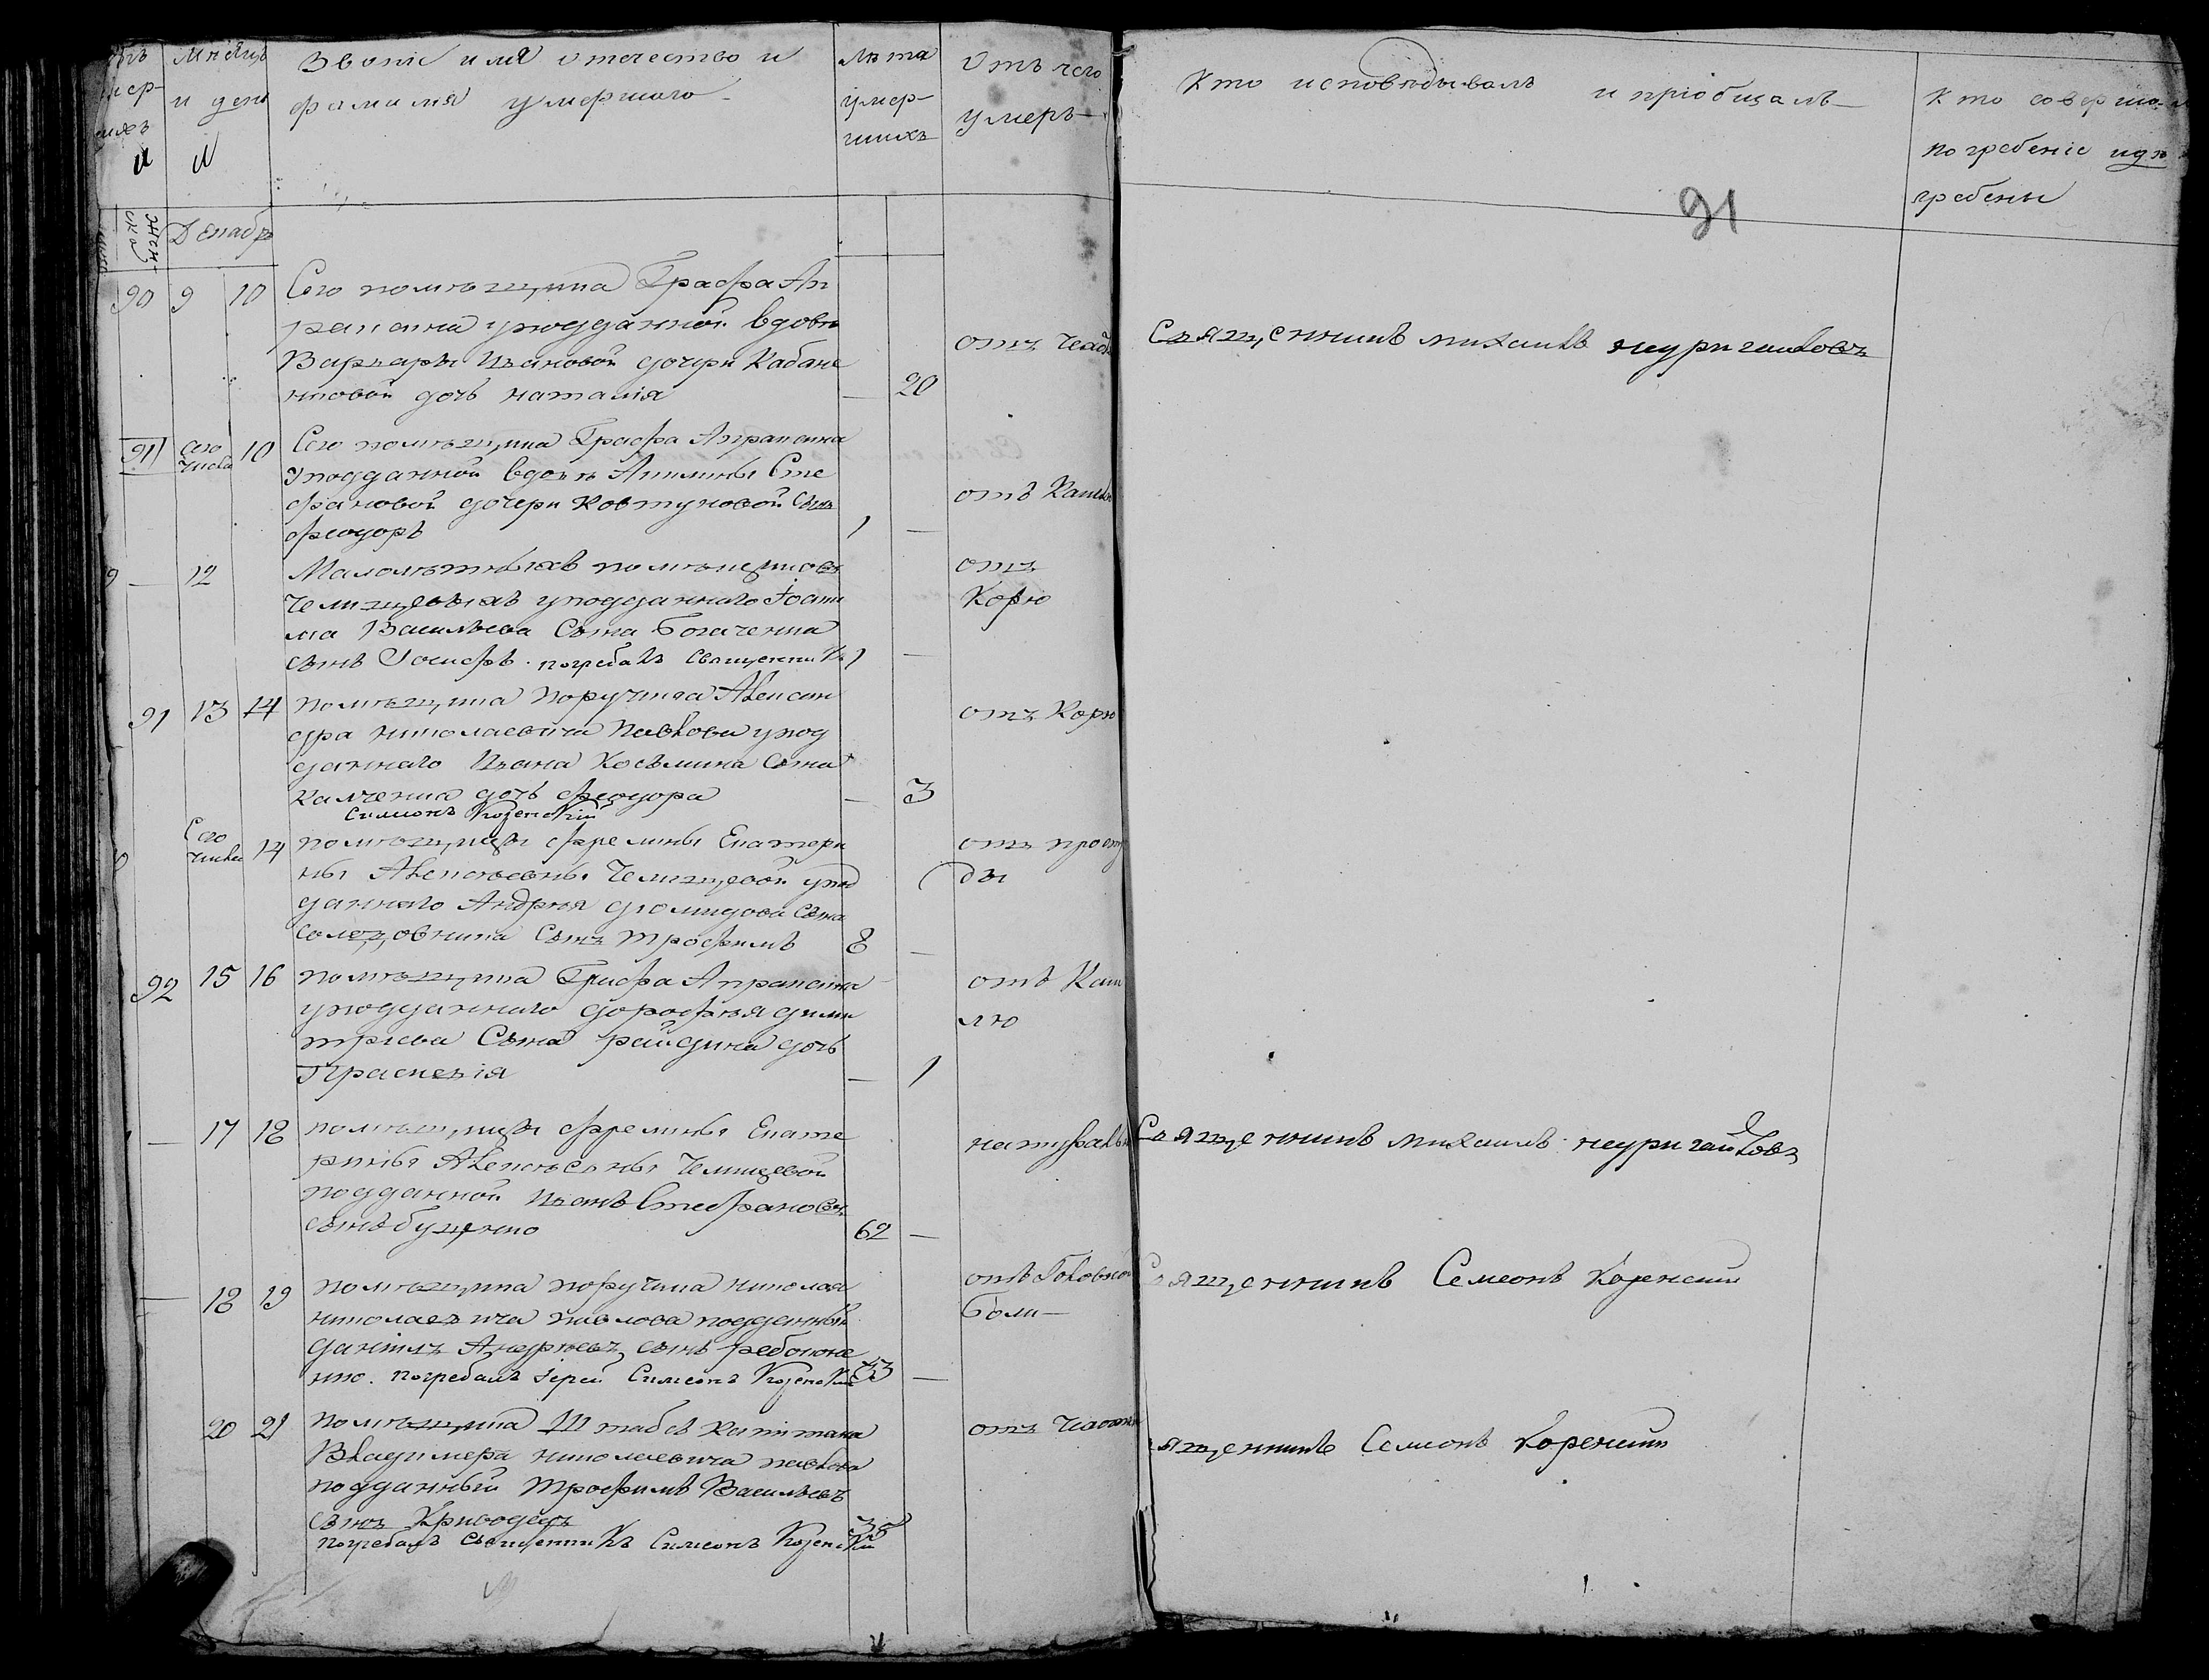 мѣсяцъ
и день
Званіе имя отечество и
фамилія умершаго
лѣта
умер-
шихъ
Отъ чего
умеръ
Кто исповѣдывалъ и пріобщалъ
Кто соверша
погребеніе
гребены
91
женска
Декабр
90 9 10 Сего помѣщика Графа Ап
раксина уподданной вдовы
Варвары Ивановой дочери Кабане
нковой дочь наталія
20
Священникъ михаилъ
91 сего числа 10 Сего помѣщика Графа Апраксина
уподданной вдовы Акилины Сте
фановой дочери Ковтуновой Сынъ
феодоръ
1 —
отъ Кашлю
— 12 Малолѣтныхъ помѣщиковъ
Челищевыхъ уподданнаго Іоаки
ма Васильева Сына Богаченка
сынъ Іосифъ. погребалъ священникъ
1 —
отъ
Корю
91 13 14 помѣщика поручика Алексан
дра николаевича Павлова упод
даннаго Ивана Косьмина Сына
Калченка дочь феодора
Симионъ Козенскій
— 3
отъ Корю
Сего числа 14 помѣщицы фрелины Екатери
ны Алексѣевны Челищевой упод
даннаго Андрея Діомидова Сына
солодовника Сынъ трофимъ
8 —
отъ просту
ды
92 15 16 помѣщика Графа Апраксина
уподданнаго дорофея дими
тріева Сына райдина дочь
Праскевія
— 1
отъ Каш
лю
— 17 18 помѣщицы фрелины Екате
рины Алексѣевны Челищевой
подданной Иванъ Стефановъ
сынъ буценко
62 —
натуральн
Священникъ михаилъ
— 18 19 помѣщика поручика николая
николаевича павлова подданный
даніилъ Андреевъ сынъ ребоконе
нко. погребалъ іерей Симеонъ Козенскій
33 —
отъ Головной
боли —
Священникъ Семеонъ Козенскій
20 21 помѣщика Штабсъ Капитана
Владимера николаевича павлова
подданный трофимъ Васильевъ
сынъ Криводедъ
погребалъ священникъ Симеонъ Козенскій
35
отъ Чахотки
ященникъ Семеонъ Козенскій